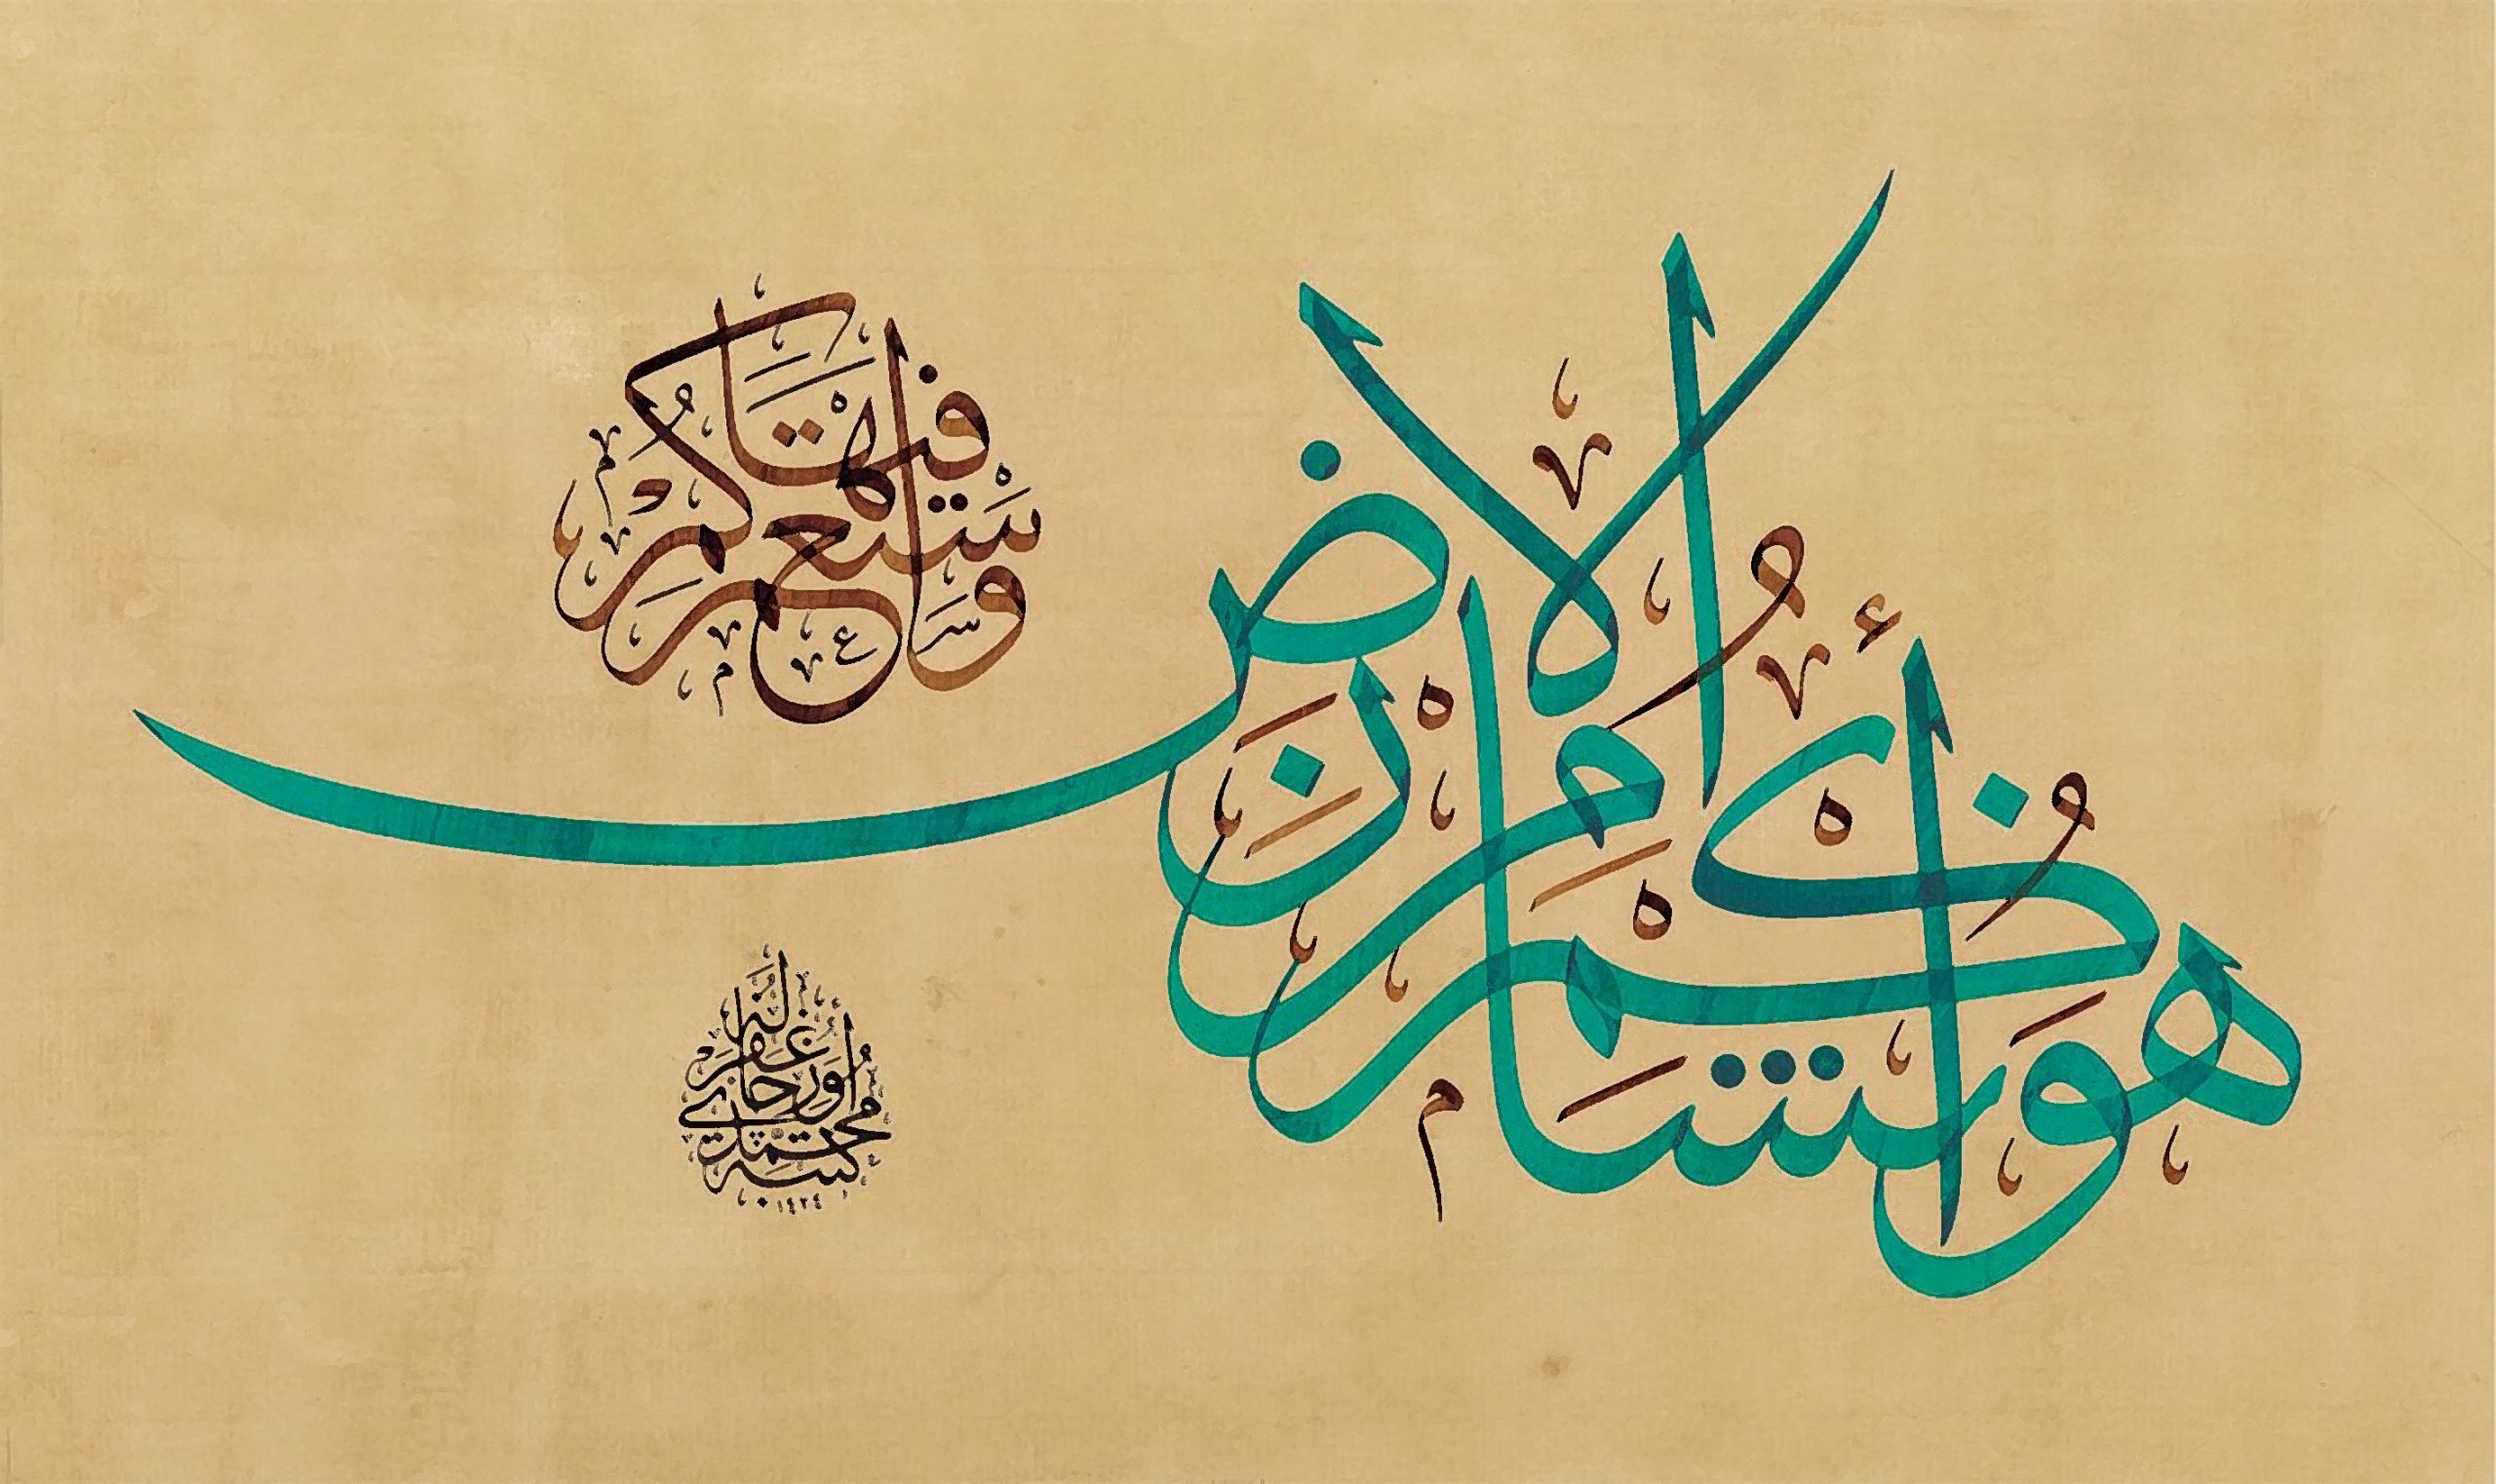 هُوَ أَنْشَأَكُمْ مِنَ الْأَرْضِ
وَاسْتَعْمَرَكُمْ فِيهَا
كتبه محمد اوزجاي غفر له
١٤٢٤